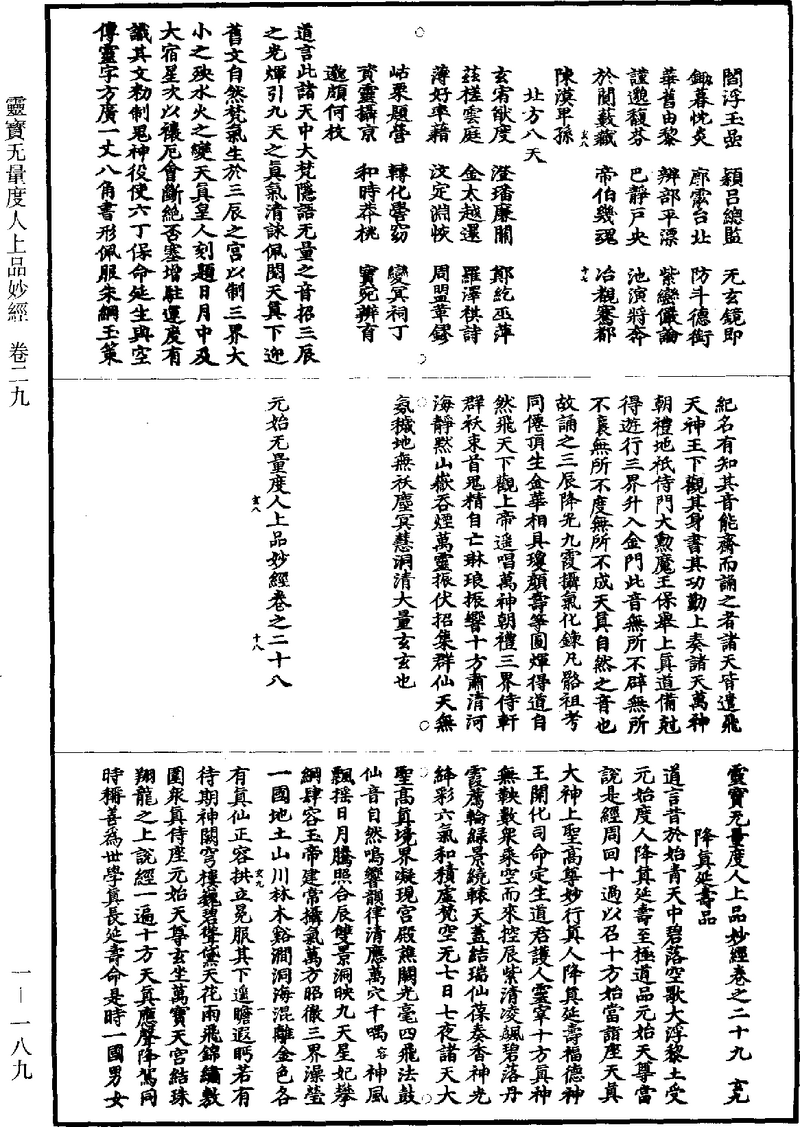 閻浮玉品　頴吕總監　无玄鏡即
鋤暮忱炎　廓霐台北　防斗德衝
華舊由黎　辨部平漂　紫巒儼論
謹邀馥芬　巴靜戸央　池演將奔
於閬藪藏　帝伯幾魂　冶覩騫都
陳漠單孫
北方八天
玄宥猷度　澄璠廉關　鄭紇巫萍
茲槎雲庭　金太越還　羅澤棋詩
薄好率藉　汶定淵悏　周盟章鏐
岵泉題營　轉化譽窈　變冥祠丁
資靈攝京　和時莽桃　寶宛辨育
邈頎何枚
道言此諸天中大梵隱語无量之音招三辰
之光煇引九天之真氣清詠佩聞天真下迎
舊文自然梵氣生於三辰之宮以制三界大
小之殃水火之變天真皇人刻題日月中及
大宿星次以禳厄會斷絶否塞增駐運度有
識其文勑制鬼神役使六丁保命延生與空
傳靈字方廣一丈八角書形佩服朱綱玉策
紀名有知其音能齋而誦之者諸天皆遣飛
天神王下觀其身書其功勤上奏諸天萬神
朝禮地祇侍門大勳魔王保舉上真道備尅
得遊行三界升入金門此音無所不辟無所
不禳無所不度無所不成天真自然之音也
故誦之三辰降光九霞攝氣化鍊凡骼祖考
同僊頂生金華相具瓊顔壽等圓煇得道自
然飛天下觀上帝遥唱萬神朝禮三界侍軒
群袄束首鬼精自亡琳琅振響十方肅清河
海靜黙山嶽吞煙萬靈振伏招集群仙天無
氛穢地無袄塵冥慧洞清大量玄玄也
元始无量度人上品妙經卷之二十八
靈寶无量度人上品妙經卷之二十九　玄九
降真延壽品
道言昔於始青天中碧落空歌大浮黎土受
元始度人降真延壽至極道品元始天尊當
說是經周回十過以召十方始當詣座天真
大神上聖高尊妙行真人降真延壽福德神
王開化司命定生道君護人靈宰十方真神
無鞅數衆乘空而來控辰紫清凌飆碧落丹
霞薦輪緑景繞轅天蓋結瑞仙葆奏香神光
絳彩六氣和積虛梵空无七日七夜諸天大
聖髙真境界凝現宮殿熊關光毫四飛法鼓
仙音自然鳴響韻律清應萬穴千喁容神風
飄摇日月騰照合辰雙景洞映九天星妃攀
綱肆容玉帝建常攝氣萬方昭徹三界澡瑩
一國地土山川林木谿澗洞海混離金色各
有真仙正容拱立冕服其下遥瞻遐眄若有
待期神闕穹樓魏碧聳黛天花雨飛錦繡敷
圍衆真侍座元始天尊玄坐萬寶天宮結珠
翔龍之上說經一遍十方天真應聲降駕同
時稱善為世學真長延壽命是時一國男女
靈寶无量度人上品妙經　卷二九
一—一八九